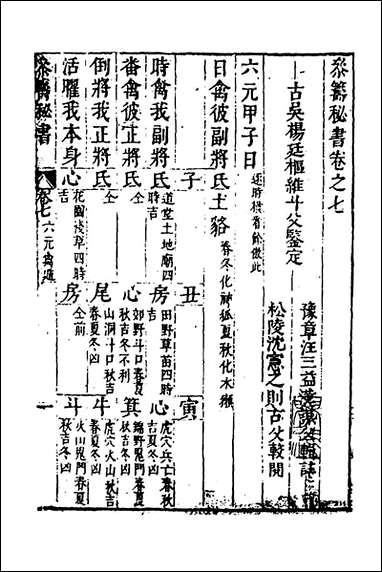 參籌秘書卷之七
豫章汪三益
古吳楊廷樞維斗父鑒定
松陵沈憲之則古父較閱
六元甲子日
逐時橫看餘倣此
日禽彼副將氐土貉 春冬化神狐夏秋化木獬
子 丑 寅
時禽我副將氐 道堂土地廟四時吉 房 田野草苗四時吉 心 虎穴兵亡春秋吉夏冬凶
畨禽彼正將氐 仝 心 郊野斗口春夏秋吉冬不利 箕 歸野鬼門春夏秋吉冬凶
倒將我正將氐 仝 尾 山澗斗口秋吉春夏冬凶 牛 虎穴火山秋吉春夏冬凶
活曜我本身心 花園淺草四時吉 房 仝前 斗 火山鬼門春夏秋吉冬凶
參籌秘書
卷七 六元禽遁
一